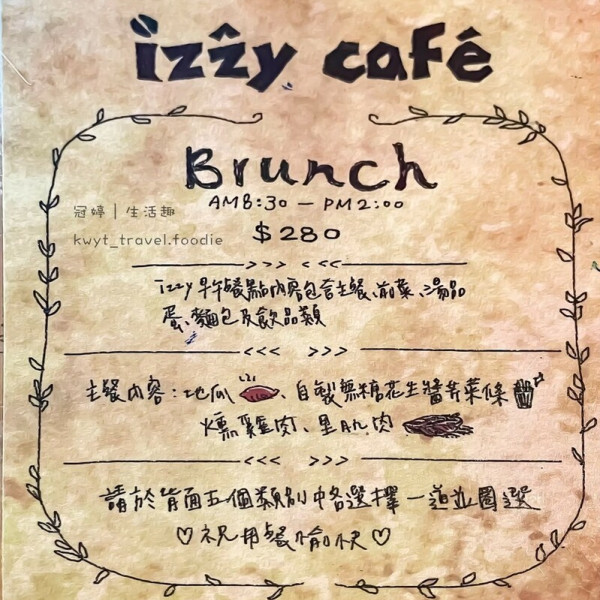 izzy café
Brunch
AM8:30 — PM2:00
冠婷 | 生活趣
kwyt_travel.foodie
$280
izzy早午餐點內容包含主餐、前菜、湯品
蛋、麵包及飲品類
主餐內容：地瓜、自製無糖花生醬芹菜條
燻雞肉、里肌肉
請於背面五個類別中各選擇一道並圈選
♡祝用餐愉快♡